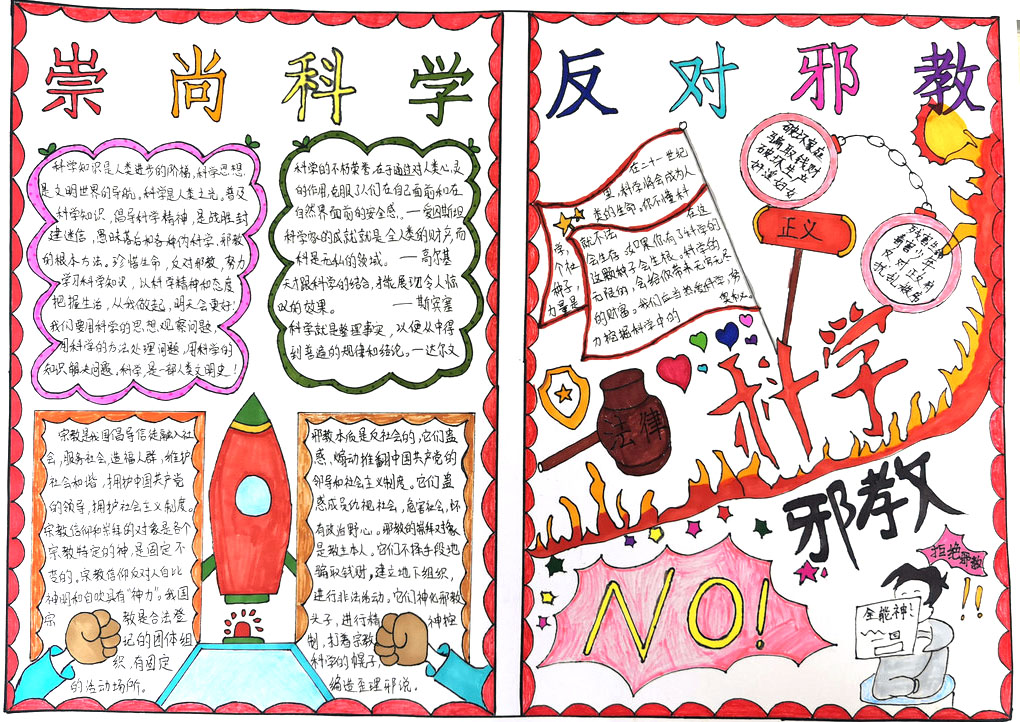 崇尚科学
反对邪教
科学知识是人类进步的阶梯,科学思想
是文明世界的导航。科学是人类之光。普及
科学知识,倡导科学精神,是战胜封
建迷信,愚昧落后和各种伪科学、邪教
的根本方法。珍惜生命,反对邪教,努力
学习科学知识,以科学精神和态度
把握生活,从我做起,明天会更好!
我们要用科学的思想观察问题,
用科学的方法处理问题,用科学的
知识解决问题。科学,是一部人类文明史!
科学的不朽荣誉,在于通过对人类心灵
的作用,克服了人们在自己面前和在
自然界面前的安全感。—爱因斯坦
科学家的成就就是全人类的财产,而
科是无私的领域。—高尔基
天才跟科学的结合,才能展现令人惊
叹的效果。—斯宾塞
科学就是整理事实,以便从中得
到普遍的规律和结论。—达尔文
宗教是我国倡导信徒融入社
会,服务社会,造福人群,维护
社会和谐,拥护中国共产党
的领导,拥护社会主义制度。
宗教信仰和崇拜的对象是各个
宗教特定的神,是固定不
变的,宗教信仰反对人自比
神明和自吹具有“神力”。我国
宗教是合法登
记的团体组
织,有固定
的活动场所。
邪教本质是反社会的,它们蛊
惑、煽动推翻中国共产党的
领导和社会主义制度。它们蛊
惑成员仇视社会,危害社会,怀
有政治野心。邪教的崇拜对象
是教主本人。它们不择手段地
骗取钱财,建立地下组织,
进行非法活动。它们神化邪教
头子,进行精神控
制,打着宗教
科学的幌子,
编造歪理邪说。
在二十一世纪
里,科学将会成为人
类的生命。你不懂科
学,就不法在这
个社会生活。如果你有了科学的
种子,这颗种子会生根。科学的
力量是无限的,会给你带来无穷无尽
的财富。我们应当热爱科学,努
力挖掘科学中的奥秘。
破坏家庭
骗取钱财
破坏生产
奸淫妇女
残害生命
毒害少年
反对政府
扰乱
正义
科学
法律
邪教
NO!
拒绝邪教
!!
全能神!